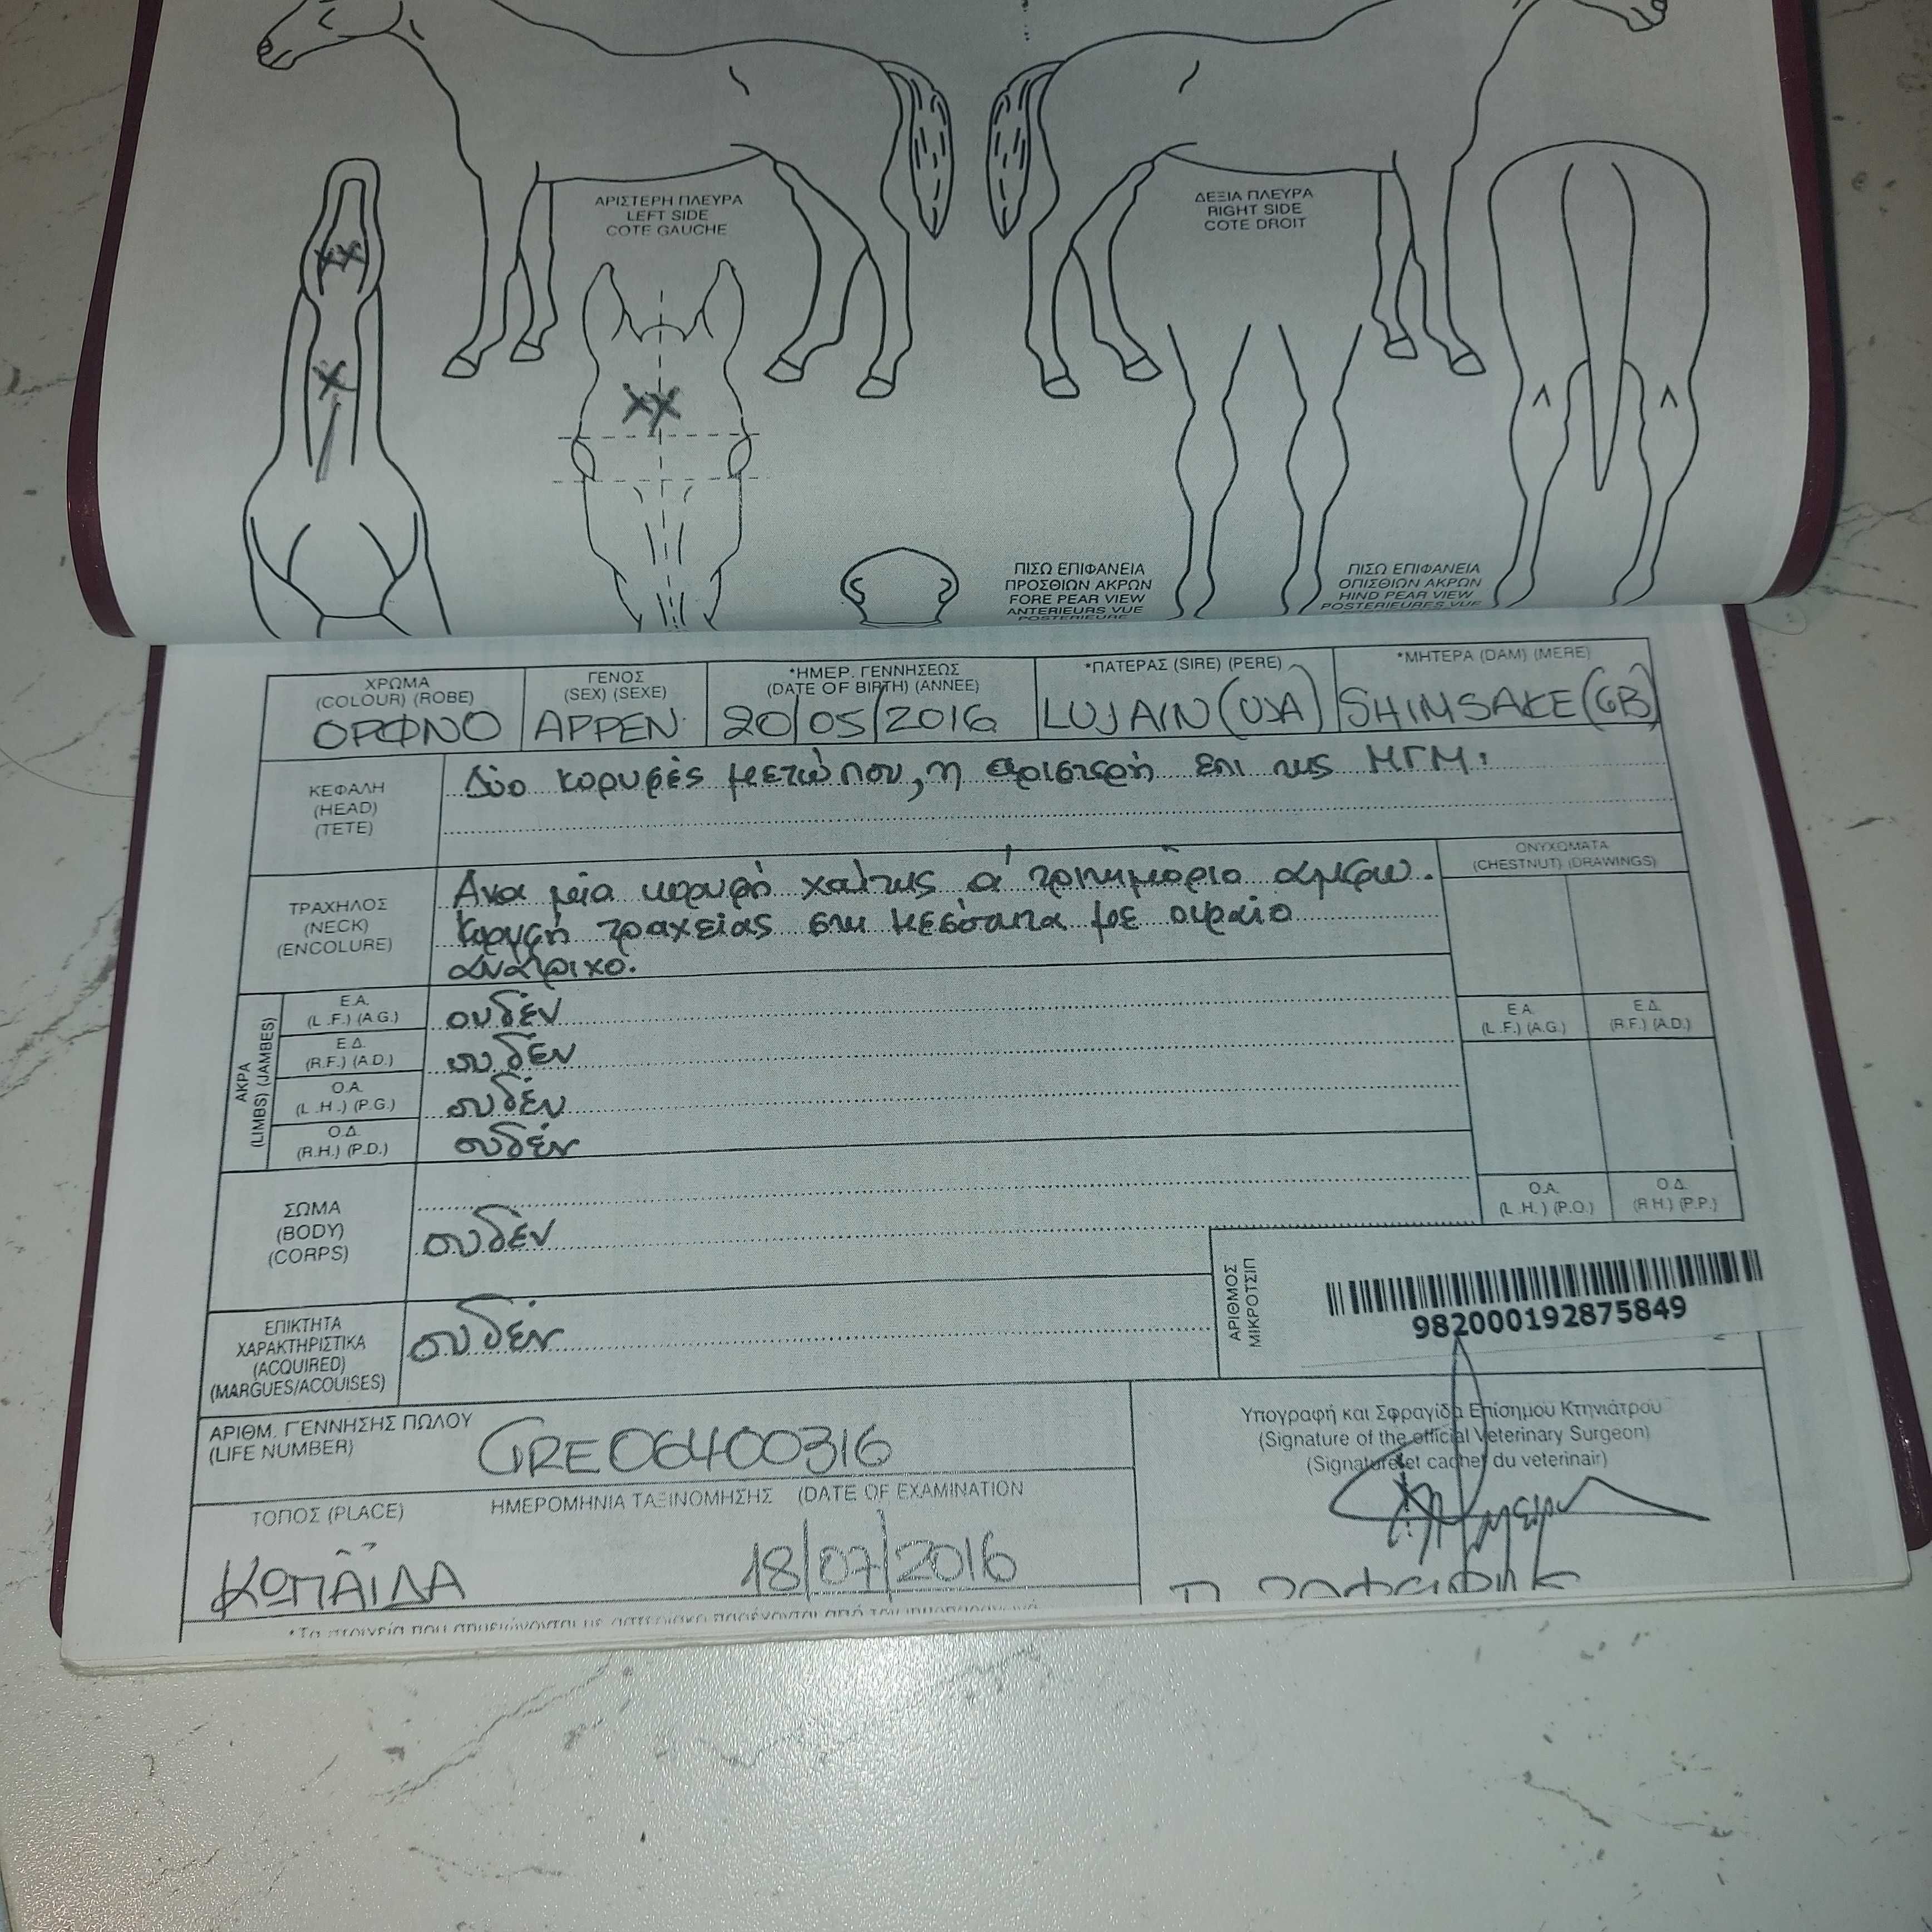 ΑΡΙΣΤΕΡΗ ΠΛΕΥΡΑ
LEFT SIDE
COTE GAUCHE
ΔΕΞΙΑ ΠΛΕΥΡΑ
RIGHT SIDE
COTE DROIT
ΠΙΣΩ ΕΠΙΦΑΝΕΙΑ
ΠΡΟΣΘΙΩΝ ΑΚΡΩΝ
FORE PEAR VIEW
ANTERIEURS VUE
POSTERIEURE
ΠΙΣΩ ΕΠΙΦΑΝΕΙΑ
ΟΠΙΣΘΙΩΝ ΑΚΡΩΝ
HIND PEAR VIEW
POSTERIEURES VUE
ΧΡΩΜΑ
(COLOUR) (ROBE)
ΟΡΦΝΟ
ΓΕΝΟΣ
(SEX) (SEXE)
ΑΡΡΕΝ
*ΗΜΕΡ. ΓΕΝΝΗΣΕΩΣ
(DATE OF BIRTH) (ANNEE)
20/05/2016
*ΠΑΤΕΡΑΣ (SIRE) (PERE)
LUJAIN (USA)
*ΜΗΤΕΡΑ (DAM) (MERE)
SHIMSAKE (GB)
ΚΕΦΑΛΗ
(HEAD)
(TETE)
Δύο κορυφές μετώπου, η αριστερή επι της ΜΓΜ.
ΤΡΑΧΗΛΟΣ
(NECK)
(ENCOLURE)
Ανα μία κορυφή χαίτης α' τριτημόριο αμφω.
Κορυφή τραχείας στη μεσότητα με ουραίο
ανάτριχο.
ΟΝΥΧΩΜΑΤΑ
(CHESTNUT) (DRAWINGS)
ΑΚΡΑ
(LIMBS) (JAMBES)
Ε.Α.
(L .F.) (A.G.)
ουδέν
Ε.Δ.
(R.F.) (A.D.)
ουδέν
Ο.Α.
(L .H .) (P.G.)
ουδέν
Ο.Δ.
(R.H.) (P.D.)
ουδέν
Ε.Α.
(L .F.) (A.G.)
Ε.Δ.
(R.F.) (A.D.)
Ο.Α.
(L .H. ) (P.O.)
Ο.Δ.
(R.H.) (P.P.)
ΣΩΜΑ
(BODY)
(CORPS)
ουδέν
ΕΠΙΚΤΗΤΑ
ΧΑΡΑΚΤΗΡΙΣΤΙΚΑ
(ACQUIRED)
(MARGUES/ACOUISES)
ουδέν
ΑΡΙΘΜΟΣ
ΜΙΚΡΟΤΣΙΠ
982000192875849
ΑΡΙΘΜ. ΓΕΝΝΗΣΗΣ ΠΩΛΟΥ
(LIFE NUMBER)
GRE06400316
ΤΟΠΟΣ (PLACE)
ΚΩΠΑΪΔΑ
ΗΜΕΡΟΜΗΝΙΑ ΤΑΞΙΝΟΜΗΣΗΣ (DATE OF EXAMINATION
18/07/2016
Υπογραφή και Σφραγίδα Επίσημου Κτηνιάτρου
(Signature of the official Veterinary Surgeon)
(Signature et cachet du veterinair)
*Τα στοιχεία που σημειώνονται με αστερίσκο παρέχονται από τον